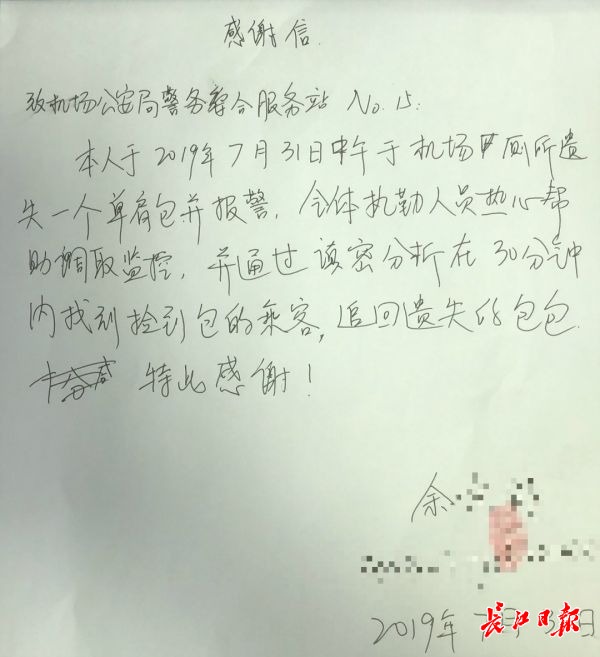 感谢信.
致机场公安局警务综合服务站 No.15:
本人于2019年7月31日中午于机场 厕所遗
失一个单肩包并报警, 全体执勤人员热心帮
助调取监控, 并通过 密分析在30分钟
内找到捡到包的乘客, 追回遗失的包包.
特此感谢!
余
2019年7月31日
长江日报